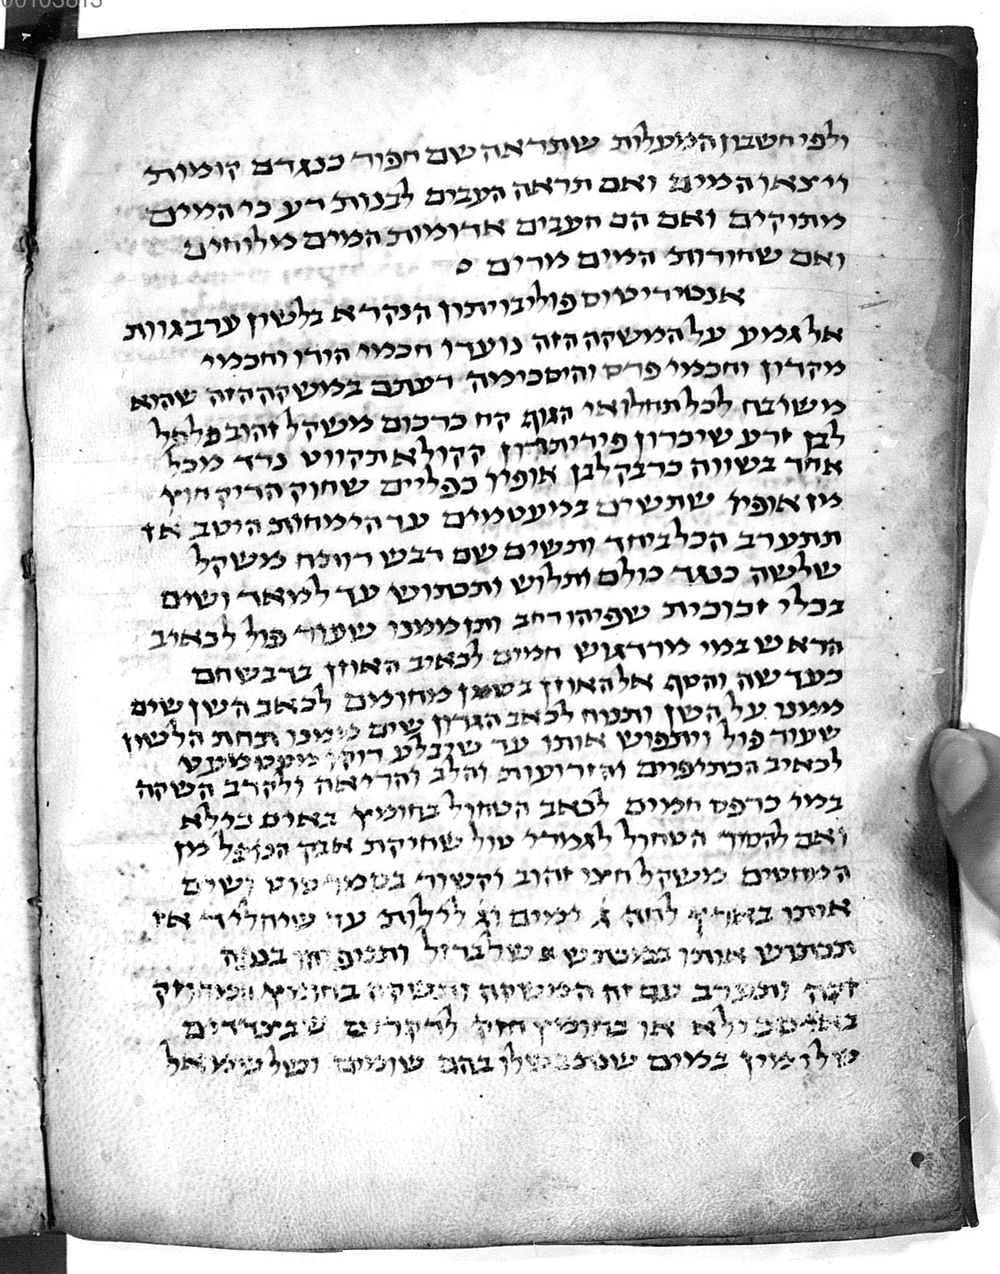 00103813
ולפי חשבון המעלות שתראה שם חפור כנגדם קומות
ויצאו המים ואם תראה העבים לבנות דע כי המים
מתוקים ואם הם העבים אדומות המים מלוחים
ואם שחורות המים מרים
אנטידיטוס פוליבויתון הנקרא בלשון ערב גוות
אל גמע על המשקה הזה נועדו חכמי הודו וחכמי
מקדון וחכמי פרס והיסכימה דעתם במשקה הזה שהוא
משובח לכל תחלואי הגוף קח כרכום משקל זהוב פלפל
לבן זרע שיכרון פיריתרון קקולא תקווט נרד מכל
אחד בשווה כרבק לבן אופיו כפליים שחוק הדיק חוץ
מן אופיו שתשרם במעטמים עד הימחות היטב אז
תתערב הכל ביחד ותשים שם דבש רותח משקל
שלשה כנגד כולם ותלוש ותכתוש עד למאד ושים
בכלי זכוכית שפיהו רחב ותן ממנו שעור פול לכאיב
הראש במי מרדגוש חמים לכאיב האוזן בדבש חם
כעדשה והטף אל האוזן בשמן מחומים לכאב השן שים
ממנו על השן ותנוח לכאב הגרון שים ממנו תחת הלשון
שעור פול ויתפוש אותו עד שנבלע דוקו מעט מעט
לכאיב הכתופים והזרועות והלב והריאה ולקרב השקה
במי כרפס חמים לכאב הטחול בחומץ באים כולא
ואם להסיר הטחול לגמרי טול שחיקת אבק הנופל מן
המחטים משקל חצי זהוב וקשור בסמרטוט ושים
אותו בחומץ לחה ג ימים וג לילות עד שיחליד אז
תכתוש אותו במכתש של ברזל ותנופהו בנפה
זכה ותערב עם זה המשקה ותשקה בחומץ
או בחומץ חזק לדקרים שבצדדים
של ימין במים שנתבשלו בהם שומים ושל שמאל